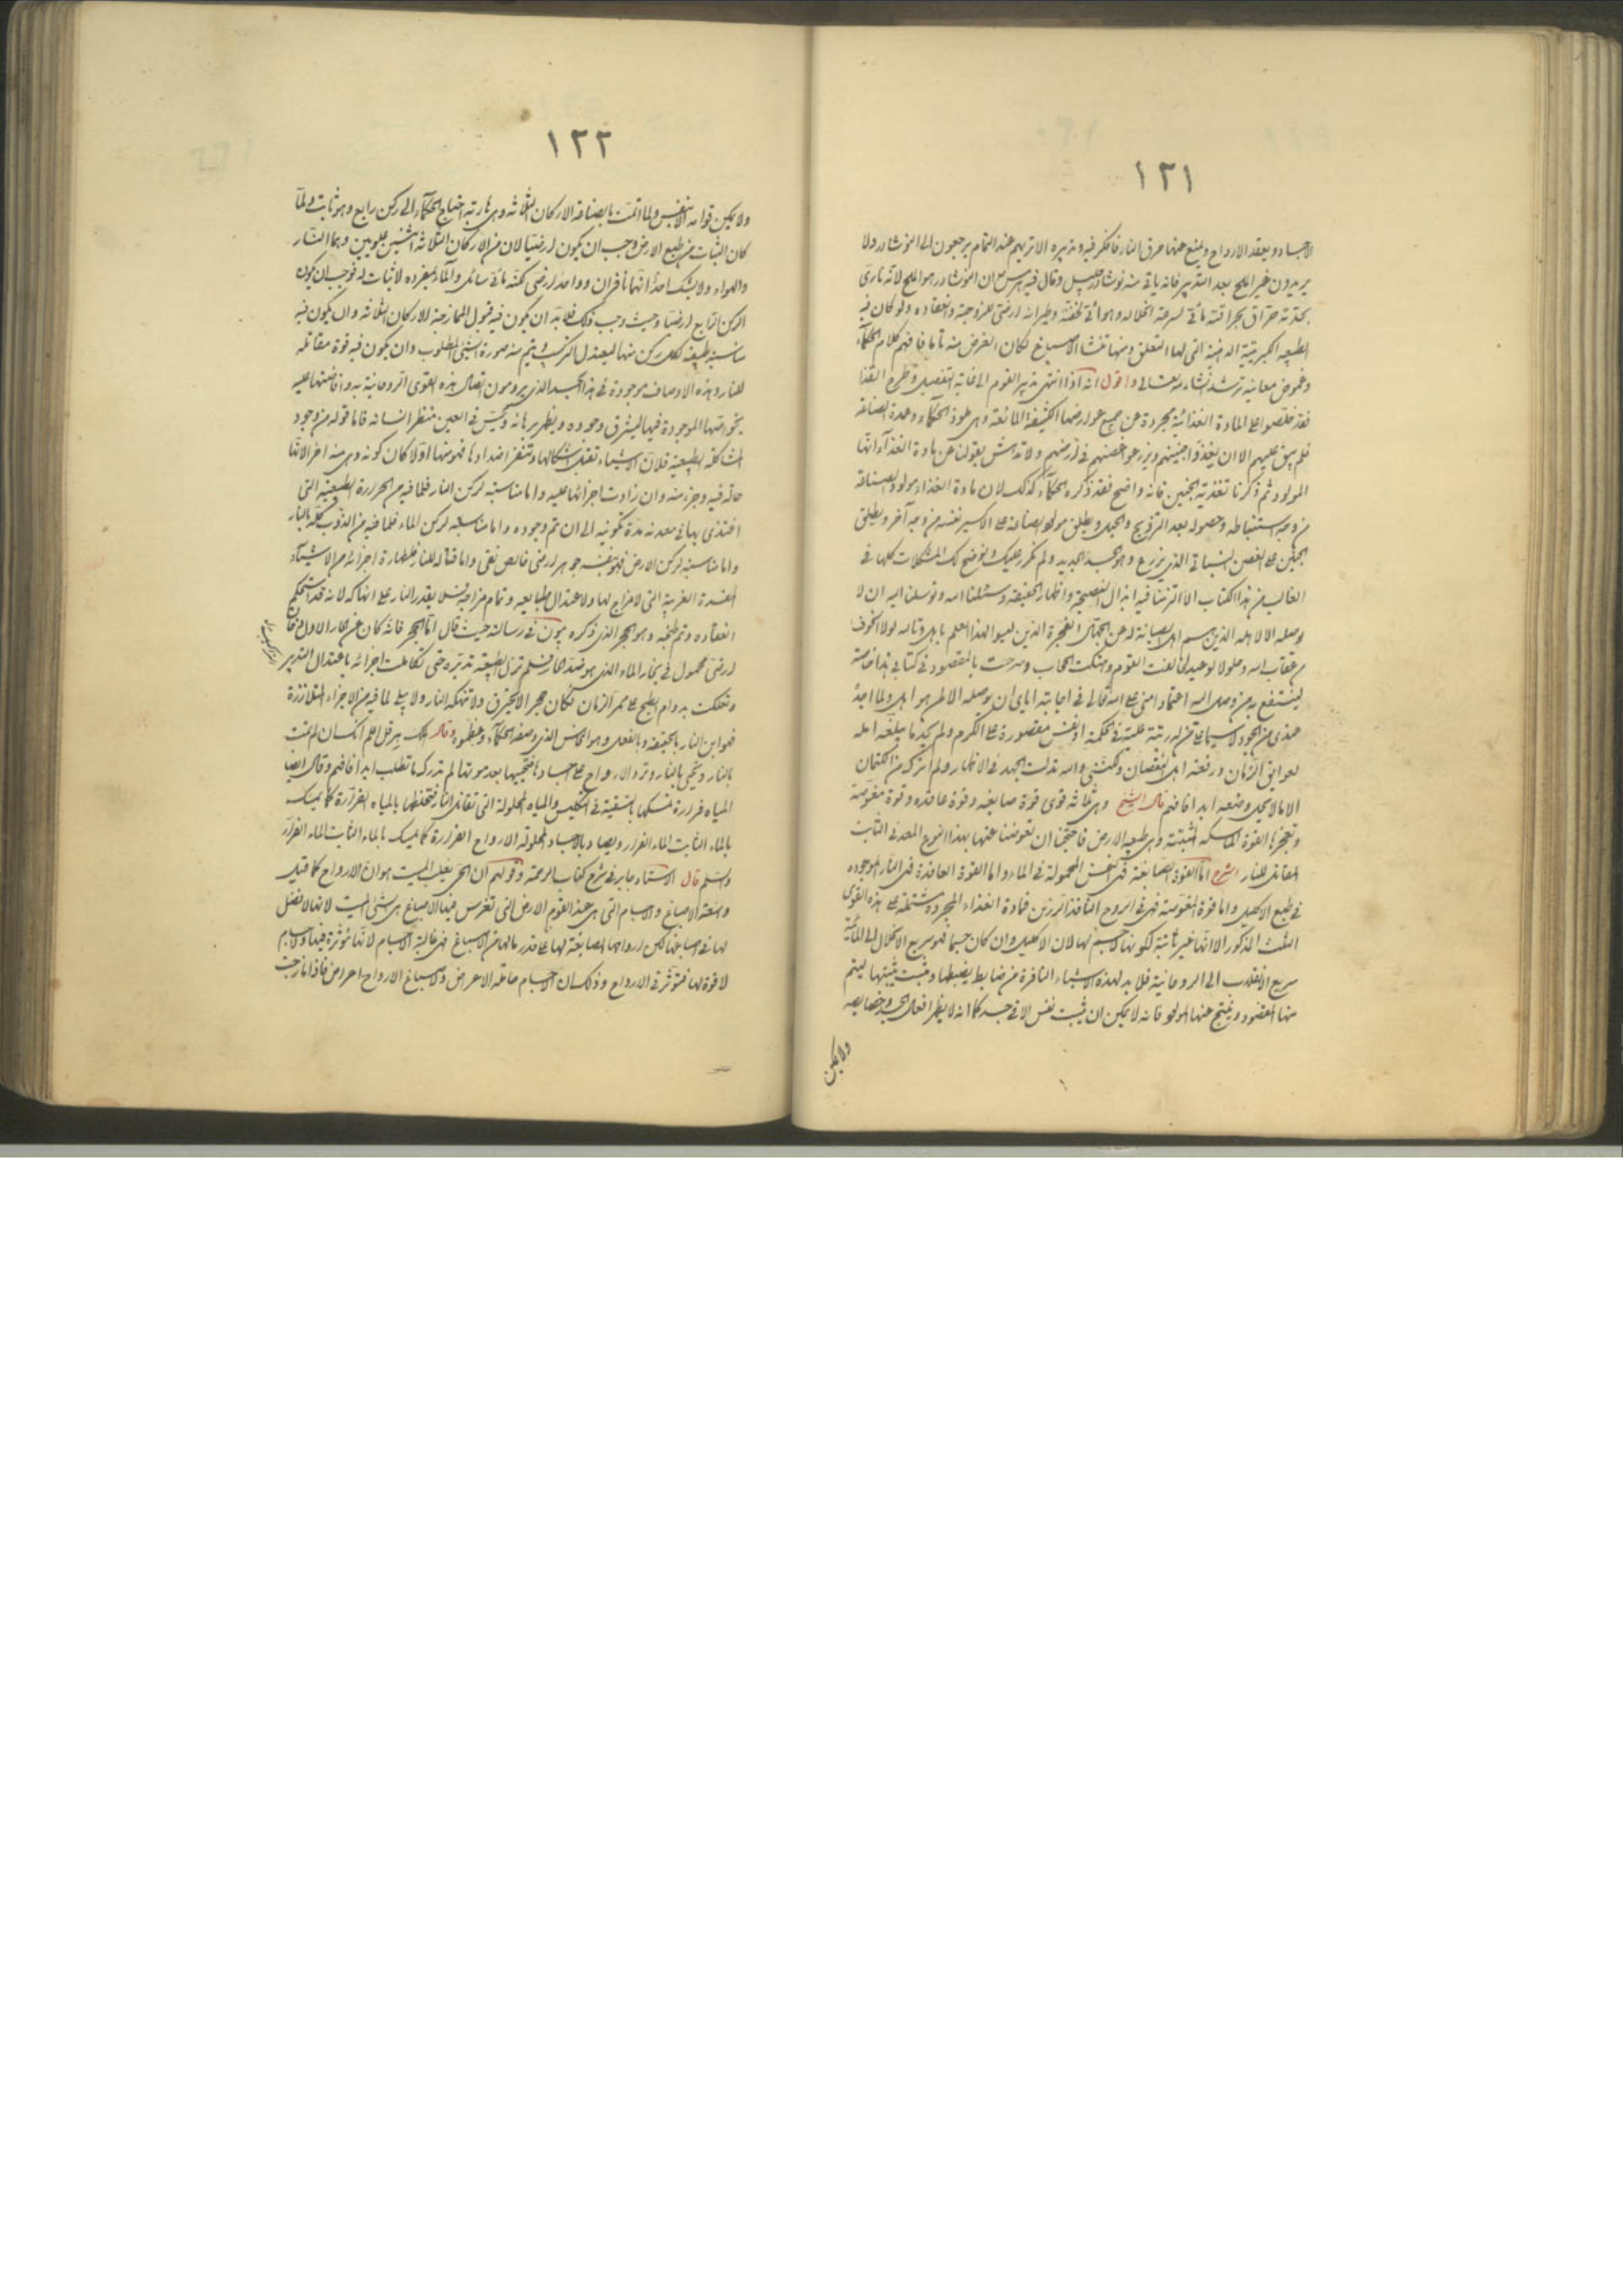 ١٢١
الاجساد ويعقد الارواح ويمنع عنها حرق النار فافكر فيه وتدبيره الا تريهم عند التمام يرجعون الى النوشادر ولا
يريدون غير الملح بعد التدبير فانه ياتى منه نوشادر جليل وقال فيه هرمس ان النوشادر هو الملح لانه نارى
بحدته حراق بحرافته مائى لسرعة انحلاله وهوائى لخفته وطيرانه ارضى للزوجته وانعقاده ولو كان فيه
الطبيعه الكبريتية الدهنية التى لها التعلق ومنها تنشا الاصباغ لكان الغرض منه تاما فافهم كلام الحكماء
وغموض معانيه ترشد انشاء الله تعالى واقول انه اذا انتهى تدبير القوم الى غاية التفصيل وطرح القذا
فقد خلصوا المادة الغذائية مجردة عن جميع عوارضها الكثيفة المانعة وهى الحكماء وعمدة الصناعة
فلم يبق عليهم الا ان يغذوا جنينهم ويزرعوا غصنهم فى ارضهم ولا تدهش بقولنا عن مادة الغذاء انها
المولود ثم ذكرنا تغذية الجنين فانه واضح فقد ذكره الحكماء كذلك لان مادة الغذاء مولود الصناعة
من وجه استنباطه وحصوله بعد التزويج والحبل ويطلق مولود الصناعة على الاكسير نفسه من وجه آخر ويطلق
الجنين على الغصن النباتى الذى يزرع وهو الجسد الجديد ولم نكرر عليك ونوضح لك المشكلات كلها فى
الغالب من هذا الكتاب الا التزمنا فيه ابذال النصيحة واظهار الحقيقة وسئلنا الله وتوسلنا اليه ان لا
يوصله الا لاهله الذين هم اهل الصيانة له عن الجهال الفجرة الذين ليسوا لهذا العلم باهل وتالله لولا الخوف
من عقاب الله وحلول الوعيد لخالفت القوم وهتكت الحجاب وصرحت بالمقصود فى كتابى هذا خاصة
لينتفع به من وصل اليه اعتمادا منى على الله تعالى فى اجابته اياى ان يوصله الا لمن هو اهل ولما اجد
عندى من الجود لا سيما على من له رتبة علية فى الحكمة او نفس مقصورة على الكرم ولم يجد ما يبلغه امله
لعوايق الزمان ورفعة اهل النقصان ولكننى والله بذلت الجهد فى الاظهار ولم اترك من الكتمان
الا ما لا يحل وضعه ابدا فافهم قال الشيخ وهى ثلاثه قوى قوة صابغه وقوة عاقده وقوة مغوصة
وتعجزها القوة الماسكه المثبتة وهى طبيعه الارض فاحتجنا ان تعوضنا عنها بهذا النوع المعدنى الثابت
المقاتل للنار الشرح اما القوة الصابغة فهى النفس المحمولة فى الماء واما القوة العاقدة فهى النار الموجوده
فى طبع الاكليل واما قوة المغوصة فهى فى الروح النافذ الرزين فمادة الغذاء المجرده مشتملة على هذه القوى
الثلث المذكورة الا انها غير ثابتة لكونها لا جسم لها لان الاكليل وان كان جسما فهو سريع الانحلال الى المائية
سريع الانقلاب الى الروحانية فلا بد لهذه الاشياء النافرة من ضابط يضبطها ومثبت يثبتها ليتم
منها المقصود وينتج عنها المولود فانه لا يمكن ان يثبت نفس الا فى جسد كما انه لا يظهر افعال الجسد وخصايصه
ولا يمكن
١٢٢
ولا يمكن قوامه الا بنفس ولما تمت بالصناعة الاركان الثلاثه وهى هاربة احتاج الحكماء الى ركن رابع وهو ثابت ولما
كان الثبات من طبع الارض وجب ان يكون ارضيا لان من الاركان الثلاثة اثنين علويين وهما النار
والهواء ولا يشك احد انهما نافران وواحد ارضى لكنه مائى سائل والماء بمفرده لا ثبات له فوجب ان يكون
الركن الرابع ارضيا وحيث وجب ذلك فلا بد ان يكون فيه قبول الممازجة للاركان الثلاثة وان يكون فيه
مناسبة طبيعة لكل ركن منها ليعتدل التركيب ويتم منه صورة الشئ المطلوب وان يكون فيه قوة مقاتله
للنار وهذه الاوصاف موجودة فى هذا الجسد الذى يرومون اتصال هذه القوى الروحانية به وافاضتها عليه
بخواصها الموجودة فيها ليشرق وجوده ويظهر برهانه وليس فى العين منظر انسانه فاما قوله من وجود
المشاكلة الطبيعية فلان الاشياء تقبل اشكالها وتنفر اضدادها فهو منها اولا كان كونه وهى منه اخر الانها
حالة فيه وجزء منه وان زادت اجزائها عليه واما مناسبته لركن النار فلما فيه من الحرارة الطبيعية التى
اغتذى بها فى معدنه مدة تكونيه الى ان تم وجوده واما مناسبته لركن الماء فلما فيه من الذوب كله بالنار
واما مناسبته لركن الارض فهو بنفسه جوهر ارضى خالص نقى واما قتاله للنار فلطهارة اجزائه من الاشياء
المفسدة الغريبة التى لا مزاج لها ولاعتدال طبايعه وتمام مزاجه فلا يقدر النار على انهاكه لانه قد استحكم
انعقاده وتم طبخه وهو الحجر الذى ذكره بيون فى رسالته حيث قال اما الحجر فانه كان عن بخار الاول دخان
ارضى محمول فى بخار الماء الذى هو ضد الحار فلم تزل الطبيعة تدبره حتى تكاملت اجزائه باعتدال التدبير
وتملكت بدوام الطبخ على ممر الزمان فكان حجر الا يحترق ولا تنهكه النار ولا يبلى لما فيه من الاجزاء المتلاززة
فهو ابن النار بالحقيقة وبالفعل وهو النحاس الذى وصفه الحكماء وعظموه وقال الملك هرقل اعلم انك ان لم تمت
بالنار وتحيى بالنار وترد الارواح على اجساد ما تحييها بعد موتها لم تدرك ما تطلب ابدا فافهم وقال ايضا
المياه فرارة تمسكها بالتسقية فى التكليس والمياه المحلولة التى تقاتل النار فتحفظها بالمياه الفرارة كما يمسك
بالماء الثابت الماء الفرار ويصاد بالاجساد المحلولة الارواح الفرارة كما يمسك بالماء الثابت الماء الفرار
واسلم قال الاستاد جابر فى شرح كتاب الرحمة وقولهم ان الحى يغلب الميت هو ان الارواح كما قيل
وانبعثة الاصباغ والاجسام التى هى عند القوم الارض التى تغرس فيها الاصباغ هى الشئ الميت لانها لا تفعل
لها فى اصباغها لكن ارواحها الصابغة لها على قدر مالها من الاصباغ فهى غالبة الاجسام لانها مؤثرة فيها والاجسام
لا قوة لها فتؤثر فى الارواح وذلك ان الاجسام حاملة الاعراض والاصباغ الارواح اعراض فاذا مازجت